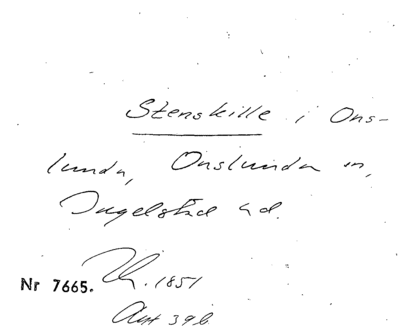 Stenskille i Ons-
lunda, Onslunda sn,
Ingelstad hd.
Nr 7665. Th. 1851
Akt 39b